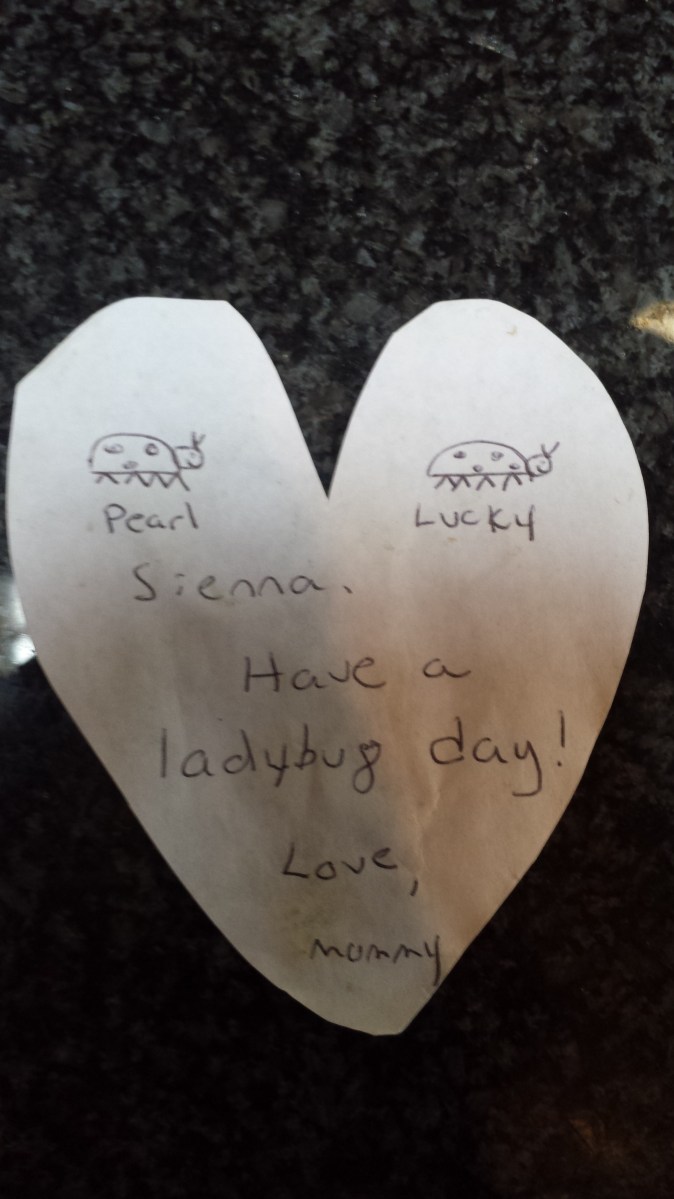 Pearl Lucky
Sienna.
Have a
ladybug day!
Love,
mommy